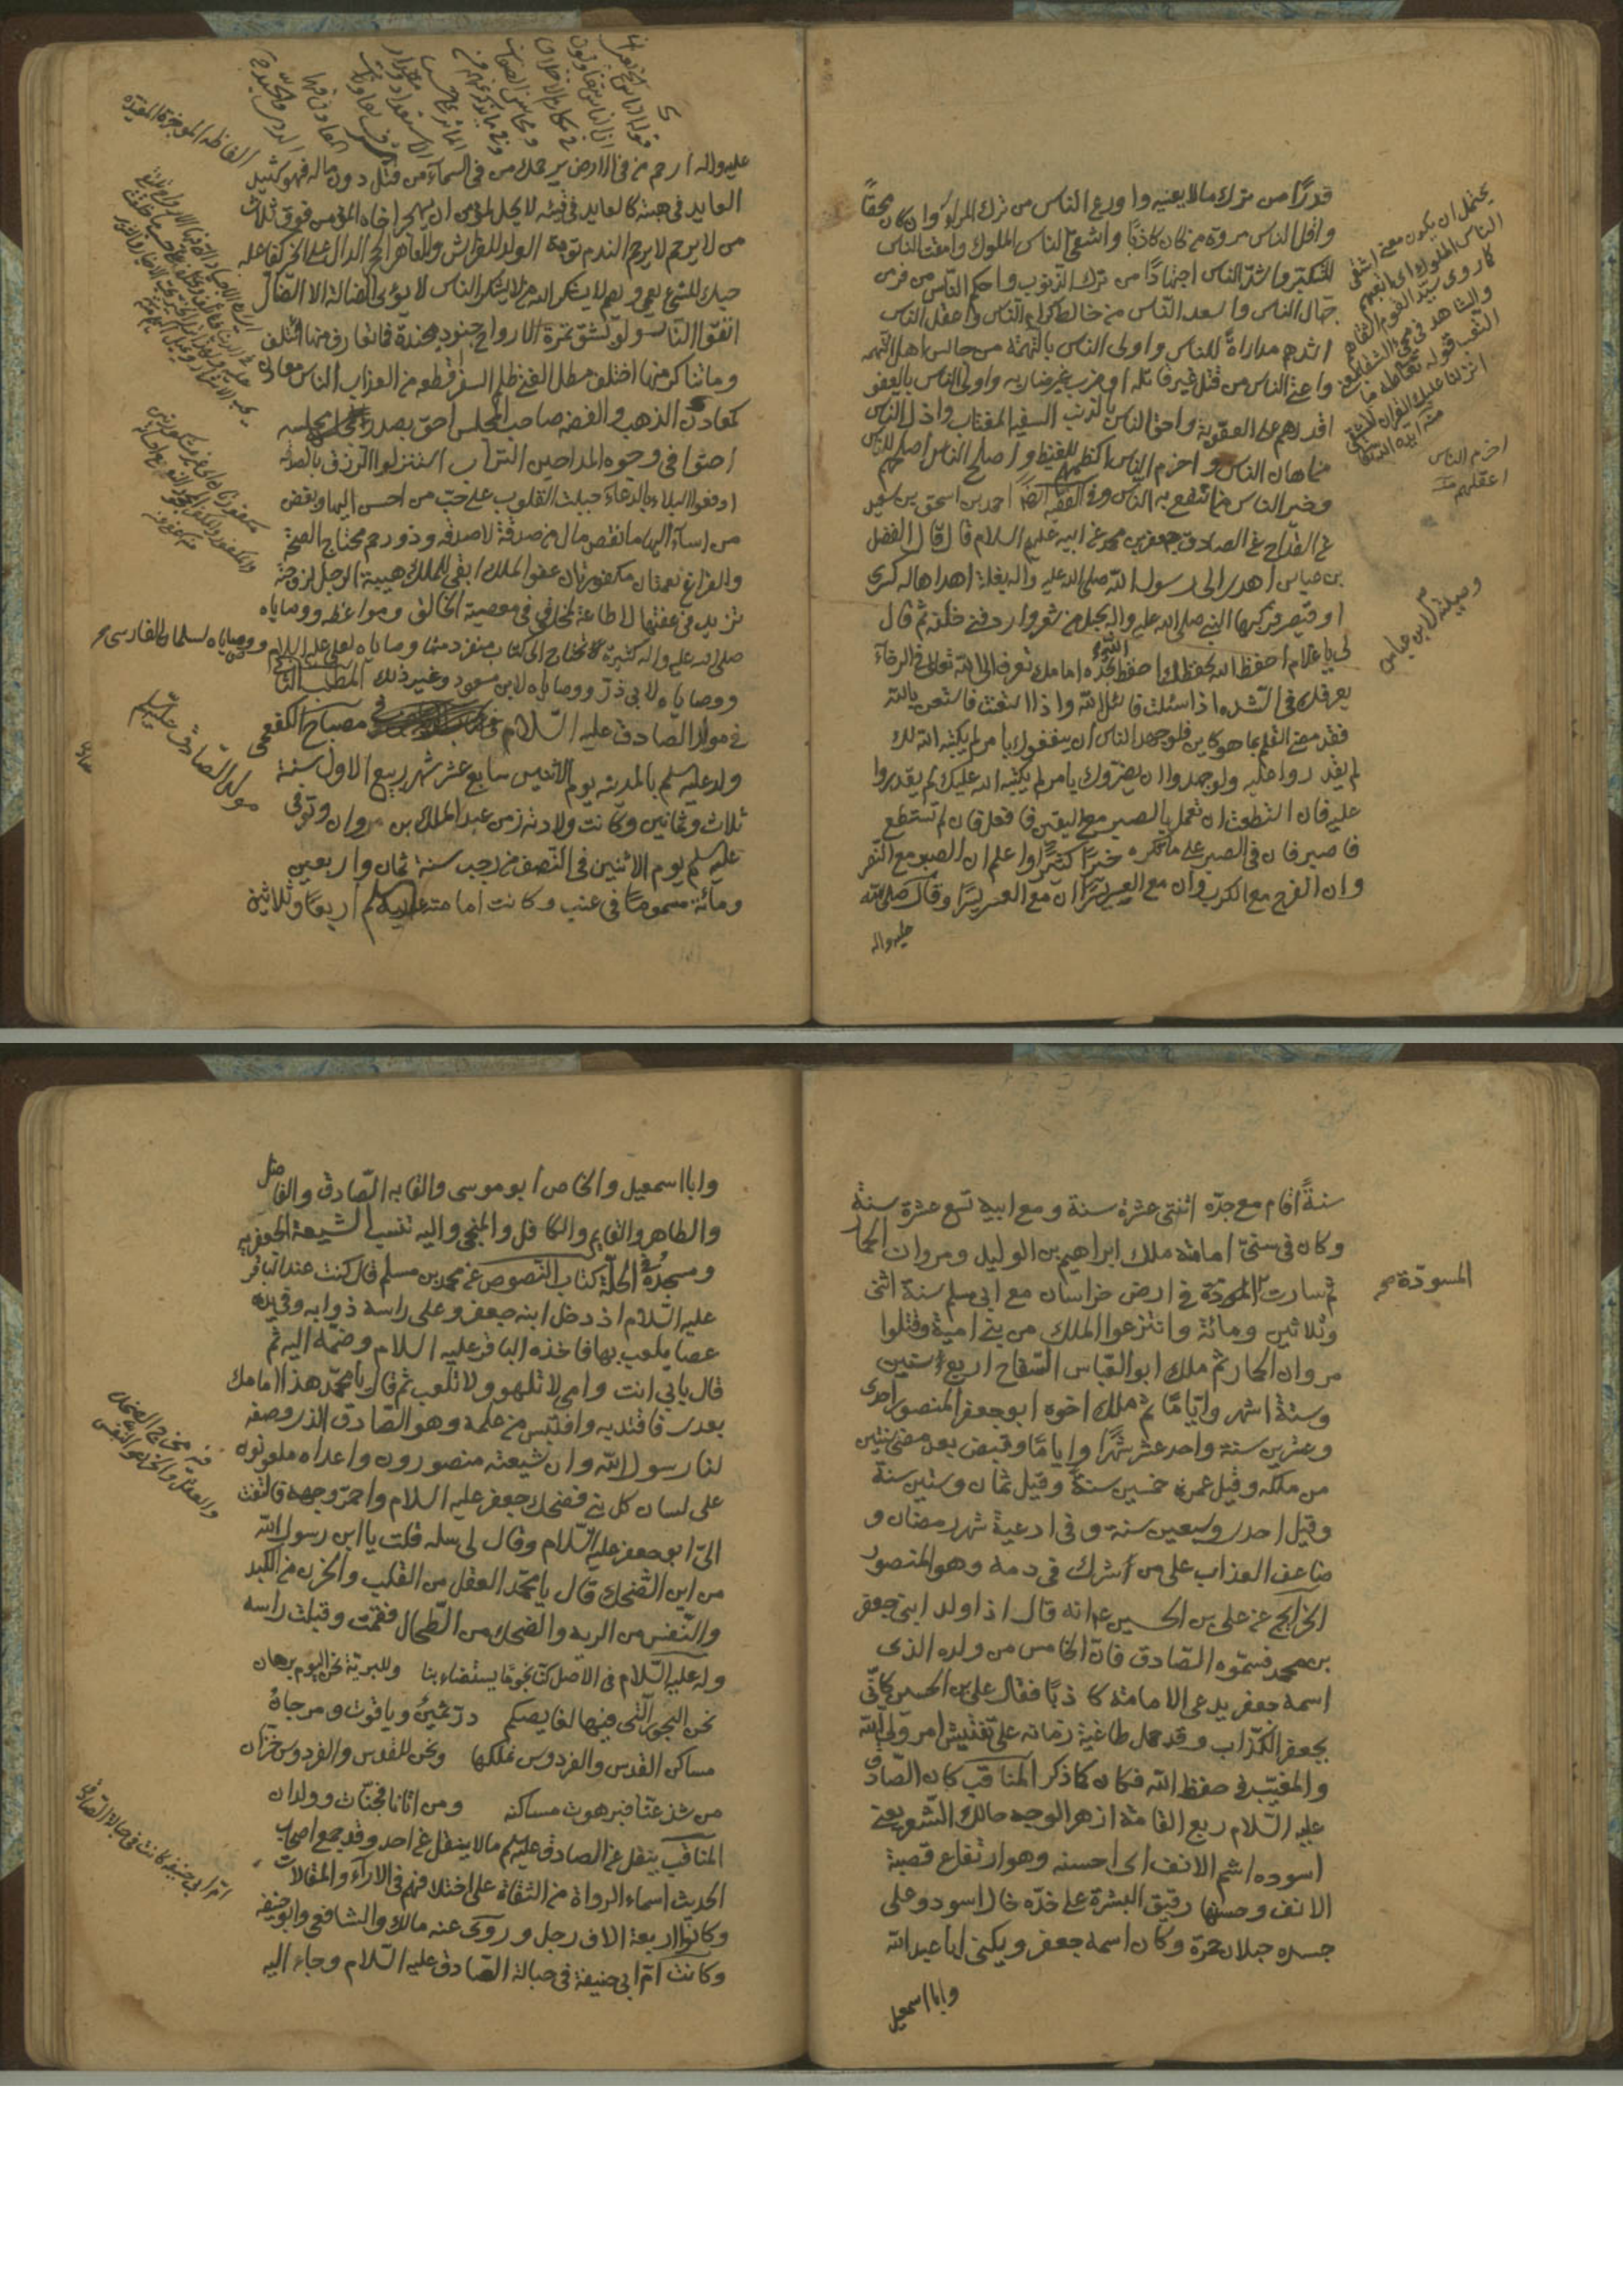 قدرًا من ترك مالا يعنيه واورع الناس من ترك المراء وان كان محقًا
واقل الناس مروة من كان كاذبًا واشقى الناس الملوك وامقت الناس
المتكبر واشد الناس اجتهادًا من ترك الذنوب واحكم الناس من فر من
جهال الناس واسعد الناس من خالط كرام الناس واعقل الناس
اشدهم مداراة للناس واولى الناس بالتهمة من جالس اهل التهمه
واعتى الناس من قتل غير قاتله او ضرب غير ضاربه واولى الناس بالعفو
اقدرهم على العقوبة واحق الناس بالذنب السفيه المغتاب واذل الناس
من اهان الناس واحزم الناس اكظمهم للغيظ واصلح الناس اصلحهم للناس
وخير الناس من انتفع به الناس وفي الفقيه ايضًا احمد بن اسحق بن سعيد
عن القداح عن الصادق جعفر بن محمد عن ابيه عليهم السلام قال قال الفضل
بن عباس اهدى الى رسول الله صلى الله عليه واله بغلة اهداها له كسرى
او قيصر فركبها النبي صلى الله عليه واله بجل من شعر واردفني خلفه ثم قال
لي يا غلام احفظ الله يحفظك احفظ الله تجده امامك تعرف الى الله تعالى في الرخاء
يعرفك في الشده اذا سئلت فاسئل الله واذا استعنت فاستعن بالله
فقد مضى القلم بما هو كاين فلو جهد الناس ان ينفعوك بامر لم يكتبه الله لك
لم يقدروا عليه ولو جهدوا ان يضروك بامر لم يكتبه الله عليك لم يقدروا
عليه فان استطعت ان تعمل بالصبر مع اليقين فافعل فان لم تستطع
فاصبر فان في الصبر على ما تكره خيرًا كثيرًا واعلم ان الصبر مع النصر
وان الفرج مع الكرب وان مع العسر يسرًا ان مع العسر يسرًا وقال صلى الله
عليه واله
يحتمل ان يكون معنى اشقى
الناس الملوك اي اتعبهم
كما روى سيد القوم الشقاهم
والشاهد في مجئ الشقا بمعنى
التعب قوله تعالى طه ما
انزلنا عليك القران لتشقى
احزم الناس
اعقلهم
وصيته لابن عباس
عليه واله ارحم من في الارض يرحمك من في السماء من قتل دون ماله فهو شهيد
العايد في هبته كالعايد في قيئه لا يحل لمؤمن ان يهجر اخاه المؤمن فوق ثلاث
من لا يرحم لا يرحم الندم توبة الولد للفراش وللعاهر الحجر الدال على الخير كفاعله
حبك للشئ يعمي ويصم لا يشكر الله من لا يشكر الناس لا يؤى الضالة الا الضال
اتقوا النار ولو بشق تمرة الارواح جنود مجندة فما تعارف منها ائتلف
وما تناكر منها اختلف مطل الغني ظلم السفر قطعه من العذاب الناس معادن
كمعادن الذهب والفضه صاحب المجلس احق بصدر مجلسه
احثوا في وجوه المداحين التراب استنزلوا الرزق بالصدقه
ادفعوا البلاء بالدعاء جبلت القلوب على حب من احسن اليها وبغض
من اساء اليها ما نقص مال من صدقة لا صدقه وذو رحم محتاج الصحة
والفراغ نعمتان مكفورتان عفو الملك ابقى للملك هيبة الرجل لزوجته
تزيد في عفتها لا طاعة لمخلوق في معصية الخالق ومواعظه ووصاياه
صلى الله عليه واله كثيرة تحتاج الى كتاب منفرد منها وصاياه لعلي عليه السلام ووصاياه لسلمان الفارسي
ووصاياه لابي ذر ووصاياه لابن مسعود وغير ذلك المطلب الثاني
في مولد الصادق عليه السلام في مصباح الكفعمي
ولد عليه السلم بالمدينه يوم الاثنين سابع عشر شهر ربيع الاول سنة
ثلاث وثمانين وكانت ولادته زمن عبد الملك بن مروان وتوفى
عليه السلم يوم الاثنين في النصف من رجب سنة ثمان واربعين
ومائة مسمومًا في عنب وكانت امامته عليه السلم اربعًا وثلاثين
الفاظه الموجزة المفيدة
مولد الصادق عليه السلم
سنةً اقام مع جده اثنتى عشرة سنة ومع ابيه تسع عشرة سنة
وكان في سني امامته ملك ابراهيم بن الوليد ومروان الحمار
ثم سارت المسودة في ارض خراسان مع ابي مسلم سنة اثنى
وثلاثين ومائة وانتزعوا الملك من بني امية وقتلوا
مروان الحمار ثم ملك ابو العباس السفاح اربع سنين
وستة اشهر وايامًا ثم ملك اخوه ابو جعفر المنصور احدى
وعشرين سنة واحد عشر شهرًا وايامًا وقبض بعد مضي سنتين
من ملكه وقيل عمره خمسين سنة وقيل ثمان وستين سنة
وقيل احدى وسبعين سنة وفي ادعية شهر رمضان و
ضاعف العذاب على من اشرك في دمه وهو المنصور
الخرايج عن علي بن الحسين ع انه قال اذا ولد ابني جعفر
بن محمد فسموه الصادق فان الخامس من ولده الذى
اسمه جعفر يدعي الامامة كاذبًا فقال علي بن الحسين كاني
بجعفر الكذاب وقد حمل طاغية زمانه على تفتيش امر ولي الله
والمغيب في حفظ الله فكان كما ذكر المناقب كان الصادق
عليه السلام ربع القامة ازهر الوجه حالك الشعر يعني
اسوده اشم الانف اى احسنه وهو ارتفاع قصبة
الانف وحسنها رقيق البشرة على خده خال اسود وعلى
جسده خيلان حمرة وكان اسمه جعفر ويكنى ابا عبد الله
وابا اسمعيل
المسودة صح
وابا اسمعيل والخاص ابو موسى والقابه الصادق والفاضل
والطاهر والقايم والكافل والمنجي واليه تنسب الشيعة الجعفريه
ومسجده في الحلة كتاب النصوص عن محمد بن مسلم قال كنت عند الباقر
عليه السلام اذ دخل ابنه جعفر وعلى راسه ذوابه وفي يده
عصا يلعب بها فاخذه الباقر عليه السلام وضمه اليه ثم
قال بابي انت وامي لا تلهو ولا تلعب ثم قال يا محمد هذا امامك
بعدى فاقتد به واقتبس من علمه وهو الصادق الذى وصفه
لنا رسول الله وان شيعته منصورون واعداه ملعونون
على لسان كل نبي فضحك جعفر عليه السلام واحمر وجهه فالتفت
الي ابو جعفر عليه السلام وقال لي سله قلت يا ابن رسول الله
من اين الضحك قال يا محمد العقل من القلب والحزن من الكبد
والنفس من الريه والضحك من الطحال فقمت وقبلت راسه
وله عليه السلام في الاصل كنا نجومًا يستضاء بنا وللبرية نحن اليوم برهان
نحن البحور التي فيها لغايصكم در ثمين وياقوت ومرجان
مساكن القدس والفردوس نملكها ونحن للقدس والفردوس خزان
من شذ عنا فبرهوت مساكنه ومن اتانا فجنات وولدان
المناقب ينقل عن الصادق عليه السلم مالا ينقل عن احد وقد جمع اصحاب
الحديث اسماء الرواة من الثقاة على اختلافهم في الاراء والمقالات
وكانوا اربعة الاف رجل وروى عنه مالك والشافعي وابو حنيفه
وكانت ام ابي حنيفة في حبالة الصادق عليه السلام وجاء اليه
فيه مخارج الضحك
والعقل والحزن والنفس
ام ابي حنيفه كانت في حبالة الصادق